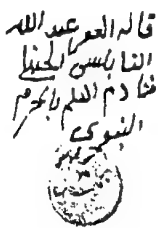 قاله الفقير عبد الله
النابلسي الحنبلي
خادم العلم بالحرم
النبوي